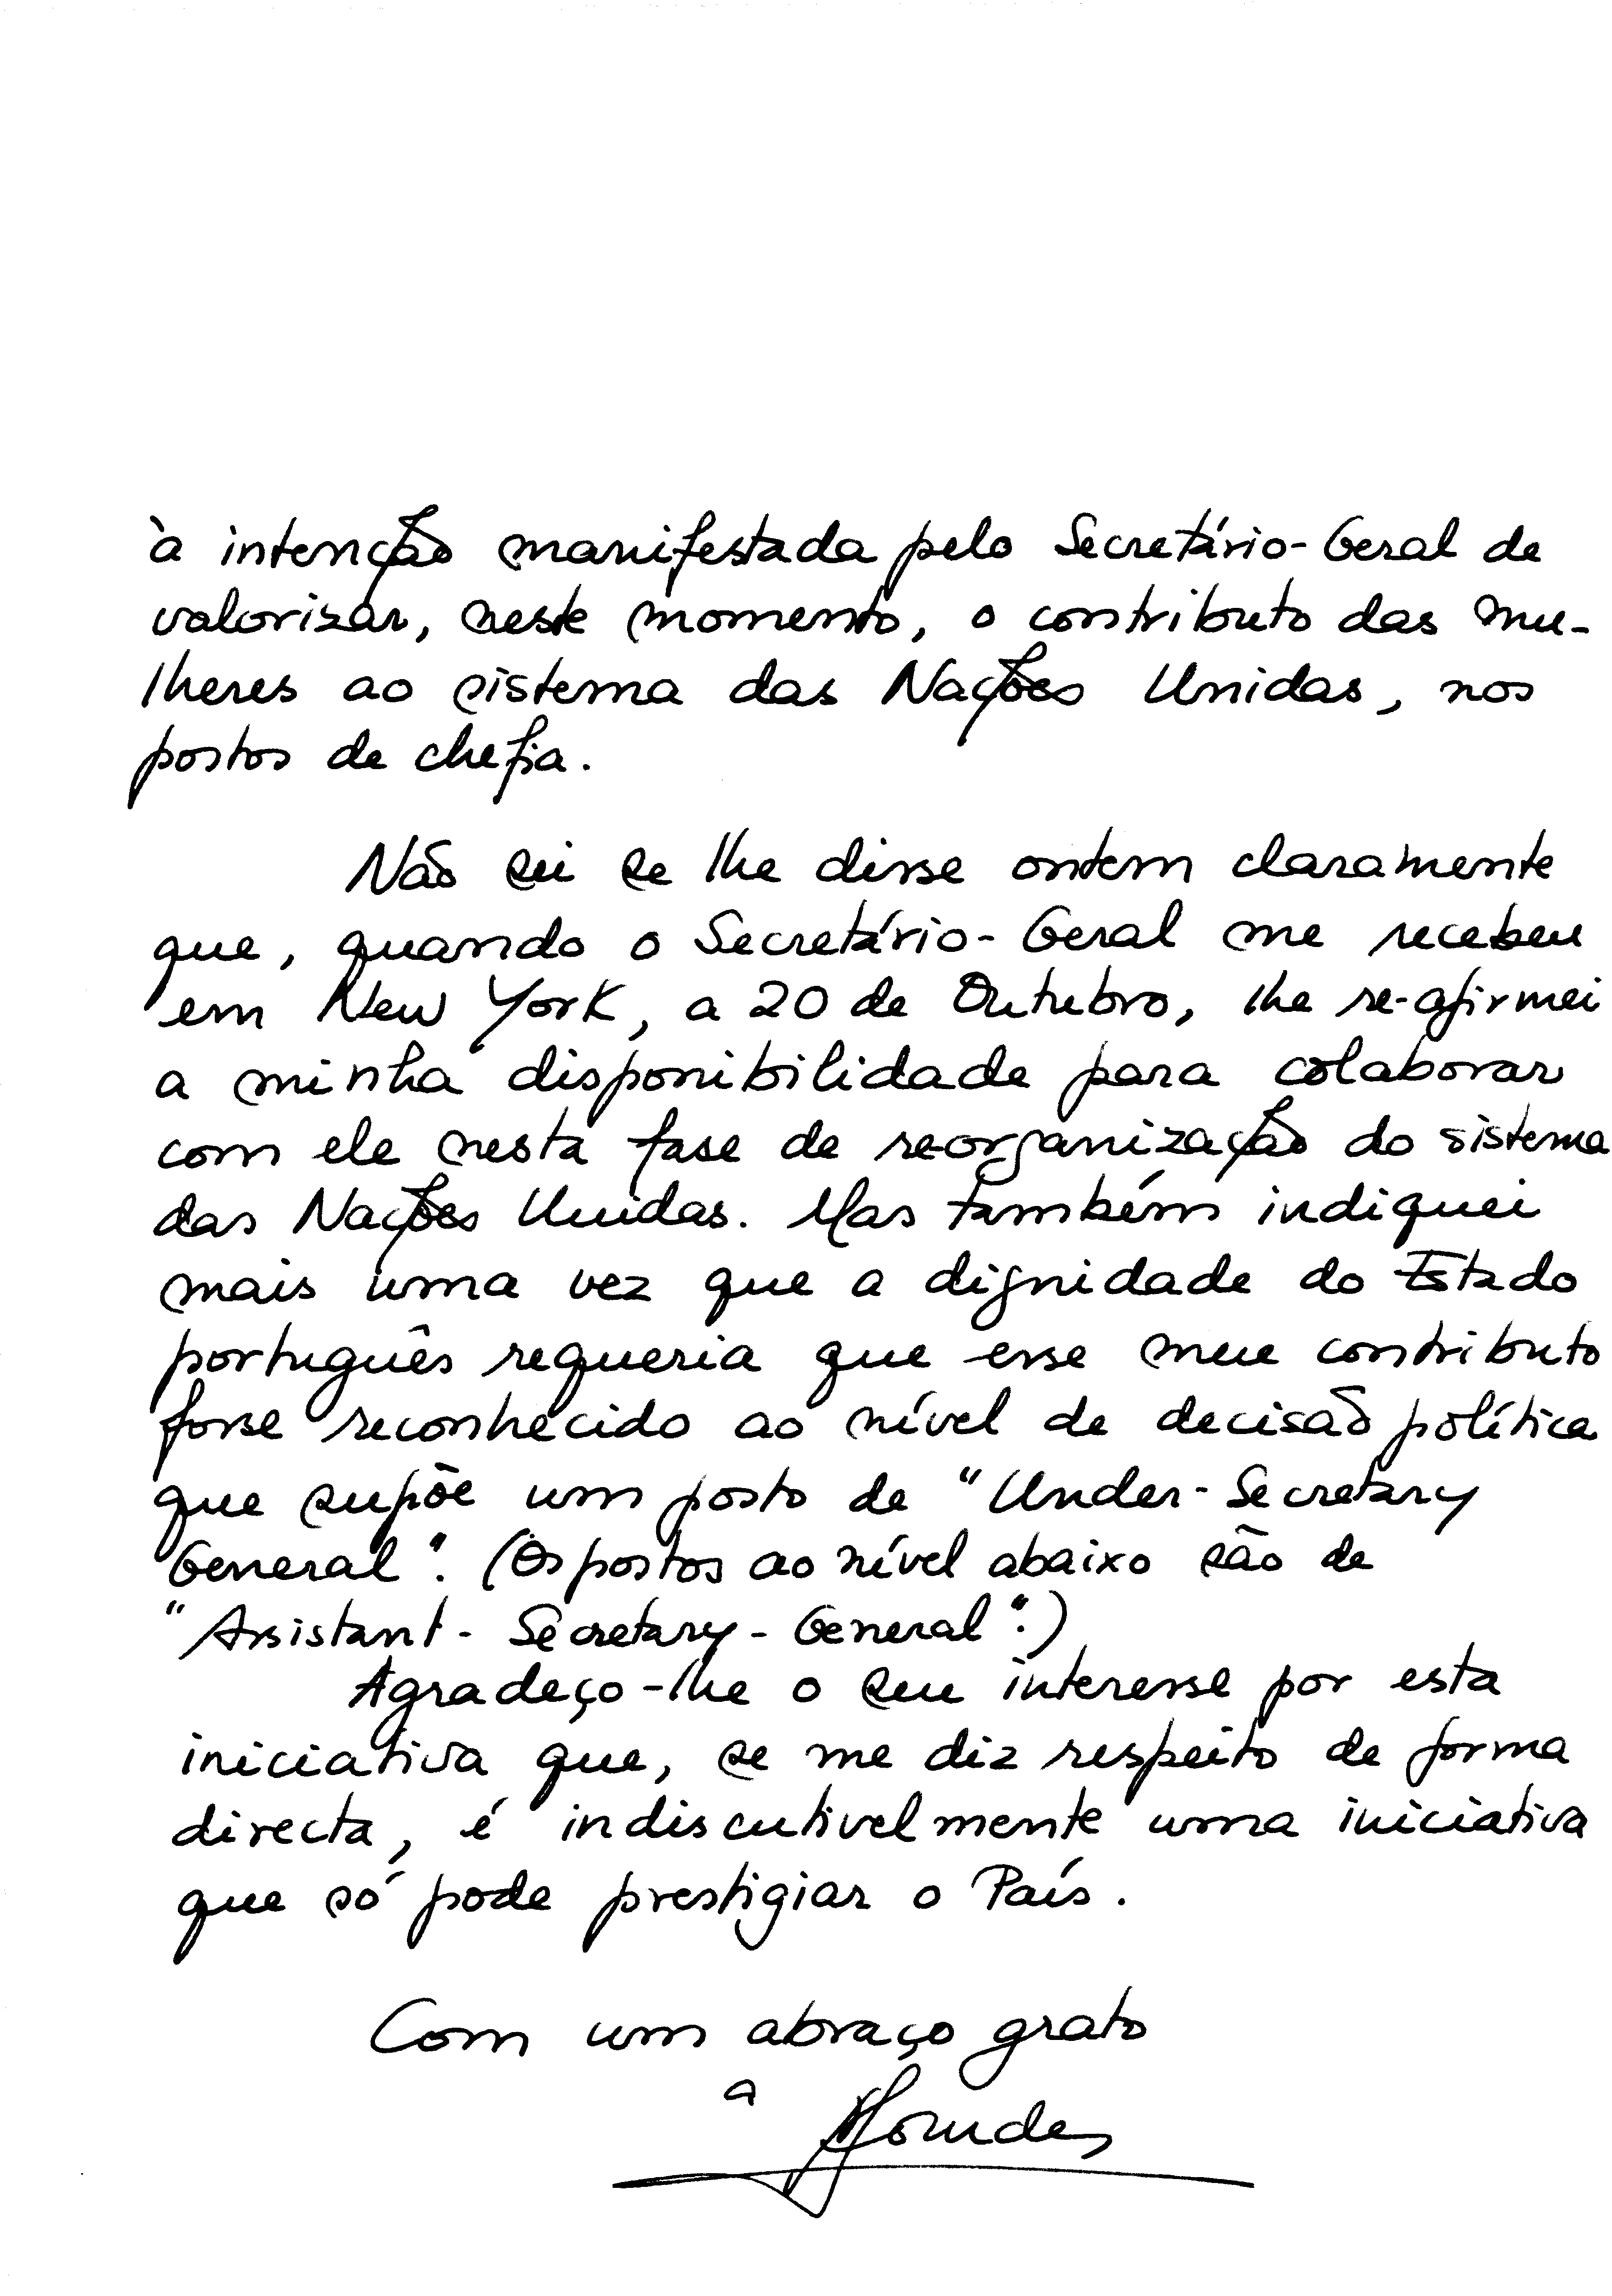 à intenção manifestada pelo Secretário-Geral de
valorizar, neste momento, o contributo das mu-
lheres ao sistema das Nações Unidas, nos
postos de chefia.
Não sei se lhe disse ontem claramente
que, quando o Secretário-Geral me recebeu
em New York, a 20 de Outubro, lhe re-afirmei
a minha disponibilidade para colaborar
com ele nesta fase de reorganização do sistema
das Nações Unidas. Mas também indiquei
mais uma vez que a dignidade do Estado
português requeria que esse meu contributo
fosse reconhecido ao nível de decisão política
que supõe um posto de "Under-Secretary
General". (Os postos ao nível abaixo são de
"Assistant-Secretary-General".)
Agradeço-lhe o seu interesse por esta
iniciativa que, se me diz respeito de forma
directa, é indiscutivelmente uma iniciativa
que só pode prestigiar o País.
Com um abraço grato
a